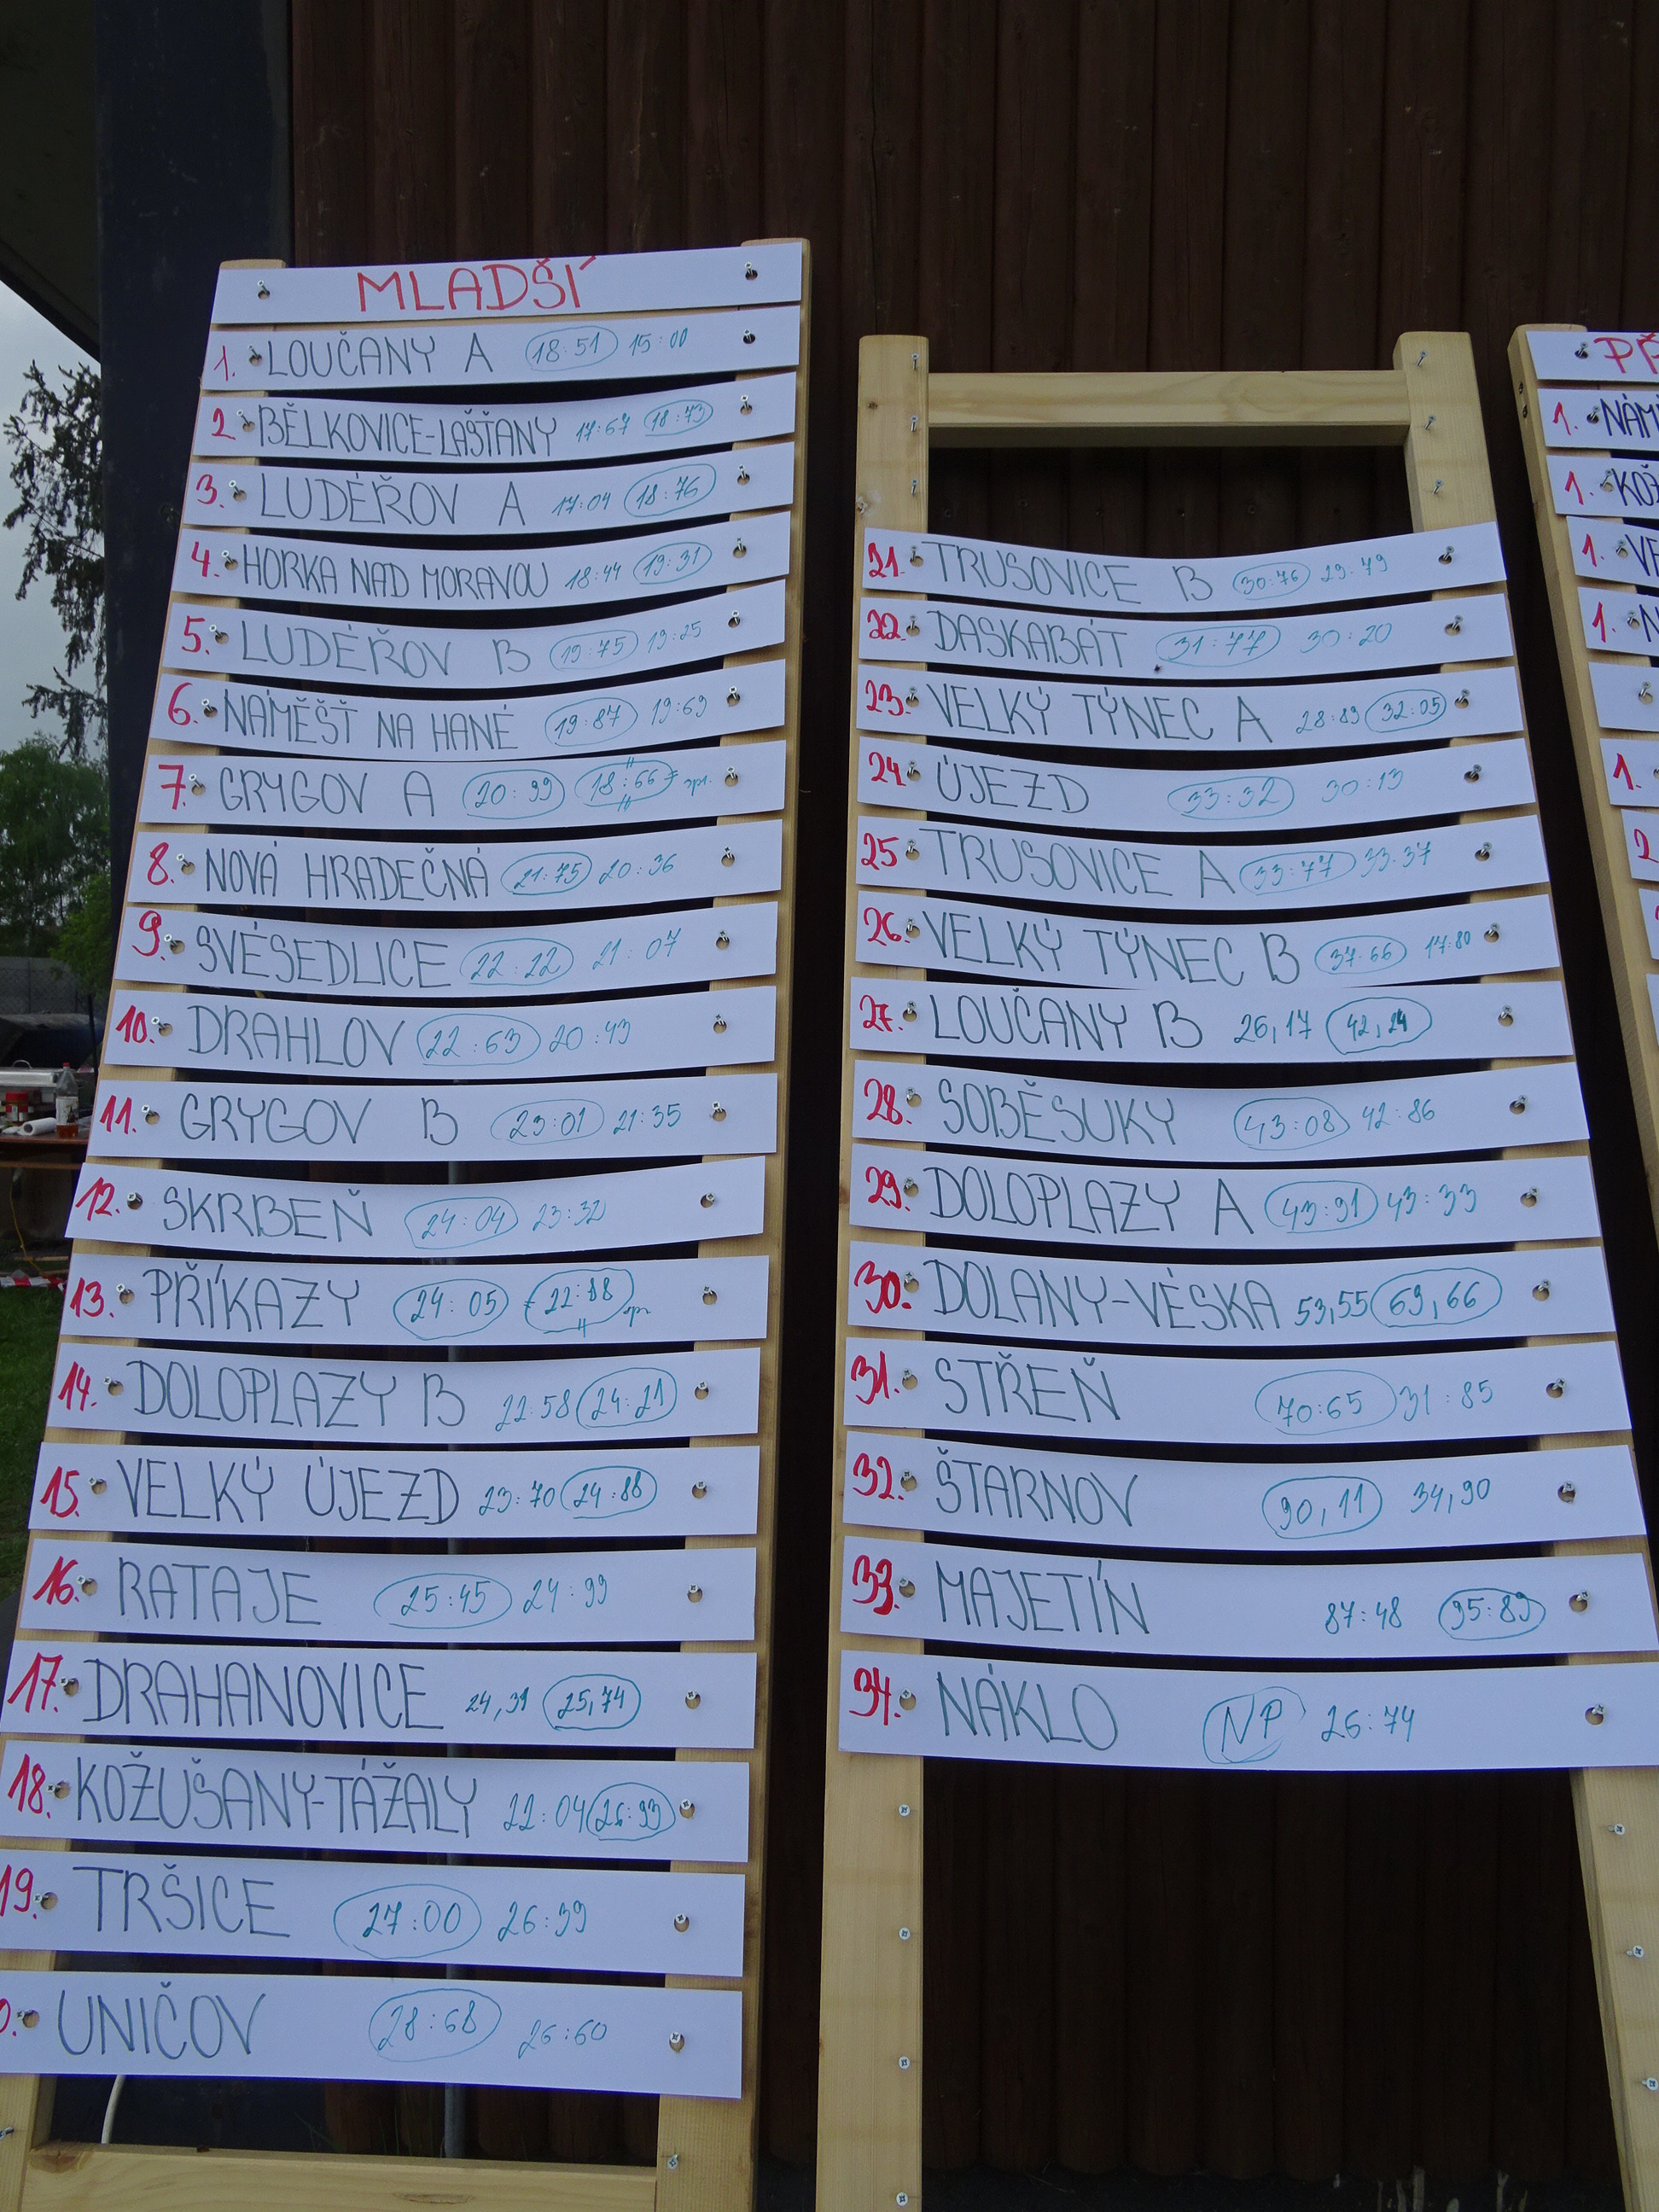 MLADŠÍ
1. LOUČANY A 18:51 15:00
2. BĚLKOVICE-LAŠŤANY 17:67 18:73
3. LUDÉŘOV A 17:04 18:76
4. HORKA NAD MORAVOU 18:44 19:31
5. LUDÉŘOV B 19:75 19:25
6. NÁMĚŠŤ NA HANÉ 19:87 19:69
7. GRYGOV A 20:99 18:66 npl.
8. NOVÁ HRADEČNÁ 21:75 20:36
9. SVÉSEDLICE 22:22 21:07
10. DRAHLOV 22:63 20:43
11. GRYGOV B 23:01 21:35
12. SKRBEŇ 24:04 23:32
13. PŘÍKAZY 24:05 22:88
14. DOLOPLAZY B 22:58 24:21
15. VELKÝ ÚJEZD 23:70 24:88
16. RATAJE 25:45 24:99
17. DRAHANOVICE 24,31 25,74
18. KOŽUŠANY-TÁŽALY 22:04 26:93
19. TRŠICE 27:00 26:39
0. UNIČOV 28:68 26:60
21. TRUSOVICE B 30:76 29:49
22. DASKABÁT 31:77 30:20
23. VELKÝ TÝNEC A 28:89 32:05
24. ÚJEZD 33:32 30:13
25 TRUSOVICE A 33:77 33:37
26. VELKÝ TÝNEC B 37:66 17:80
27. LOUČANY B 26,17 42,24
28. SOBĚSUKY 43:08 42:86
29. DOLOPLAZY A 43:91 43:33
30. DOLANY-VÉSKA 53,55 69,66
31. STŘEŇ 70:65 31:85
32. ŠTARNOV 90,11 34,90
33. MAJETÍN 87:48 95:89
34. NÁKLO NP 26:74
PŘ
1. NÁM
1. KOŽ
1. VE
1. N
1.
2